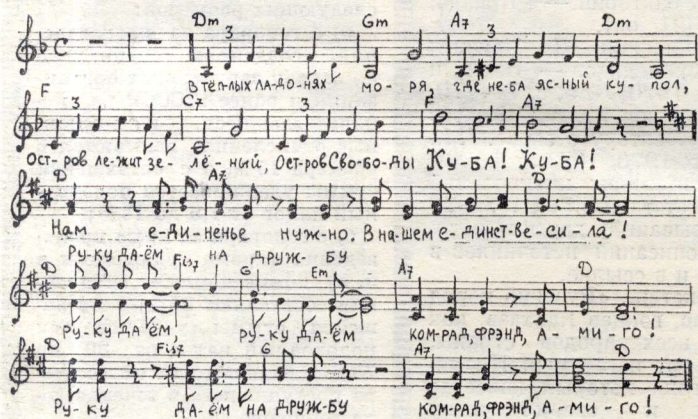 Dm Gm A7 Dm
3 3
В тёп-лых ла-до-нях мо-ря, где не-ба яс-ный ку-пол,
F C7 F A7
3 3
Ост-ров ле-жит зе-лё-ный, Ост-ров Сво-бо-ды Ку-ба! Ку-ба!
D A7 D
Нам е-ди-ненье нуж-но. В на-шем е-динст-ве-си-ла!
Ру-ку да-ём на друж-бу
D Fis7 G Em A7 D
ру-ку да-ём, ру-ку да-ём ком-рад, фрэнд, а-ми-го!
D Fis7 G A7 D
Ру-ку да-ём на друж-бу ком-рад, фрэнд, а-ми-го!